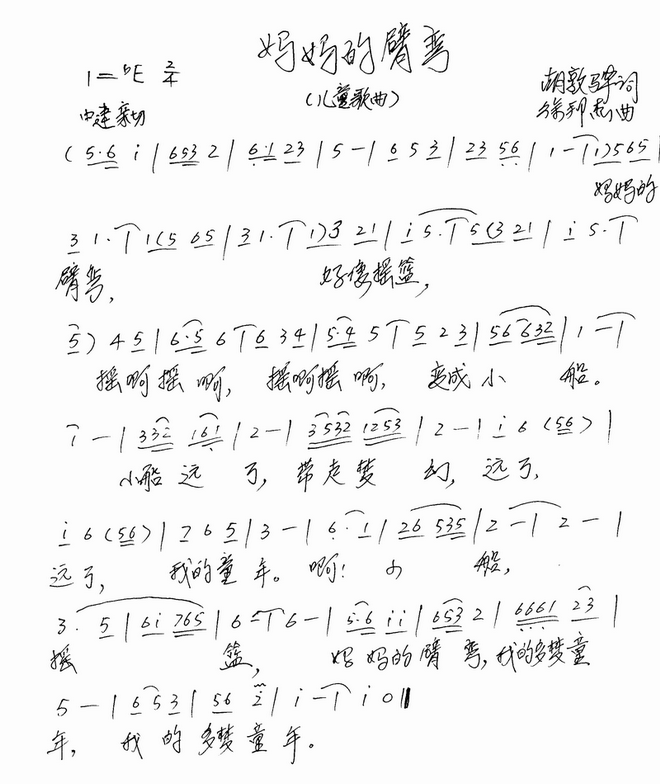 妈妈的臂弯
1=♭E 2/4
(儿童歌曲)
中速 亲切
词
曲
(5·6 i|653 2|6·1 23|5-|6 5 3|23 56|1-|1)565|
妈妈的
3 1·|1(5 65|31·|1)3 21|i 5·|5(3 21|i 5·|
臂弯, 好像摇篮,
5)45|6·5 6|6 34|5·4 5|5 23|56 632|1-|
摇啊摇啊, 摇啊摇啊, 变成小船。
1-|332 161|2-|3532 1253|2-|i 6 (56)|
小船远了, 带走梦幻, 远了,
i 6 (56)|7 6 5|3-|6·1|26 535|2-|2-|
远了, 我的童年。啊! 小船,
3·5|6i 765|6-|6-|5·6 ii|653 2|6661 23|
摇篮, 妈妈的臂弯, 我的多梦童
5-|6 5 3|56 2|i-|i 0‖
年, 我的多梦童年。